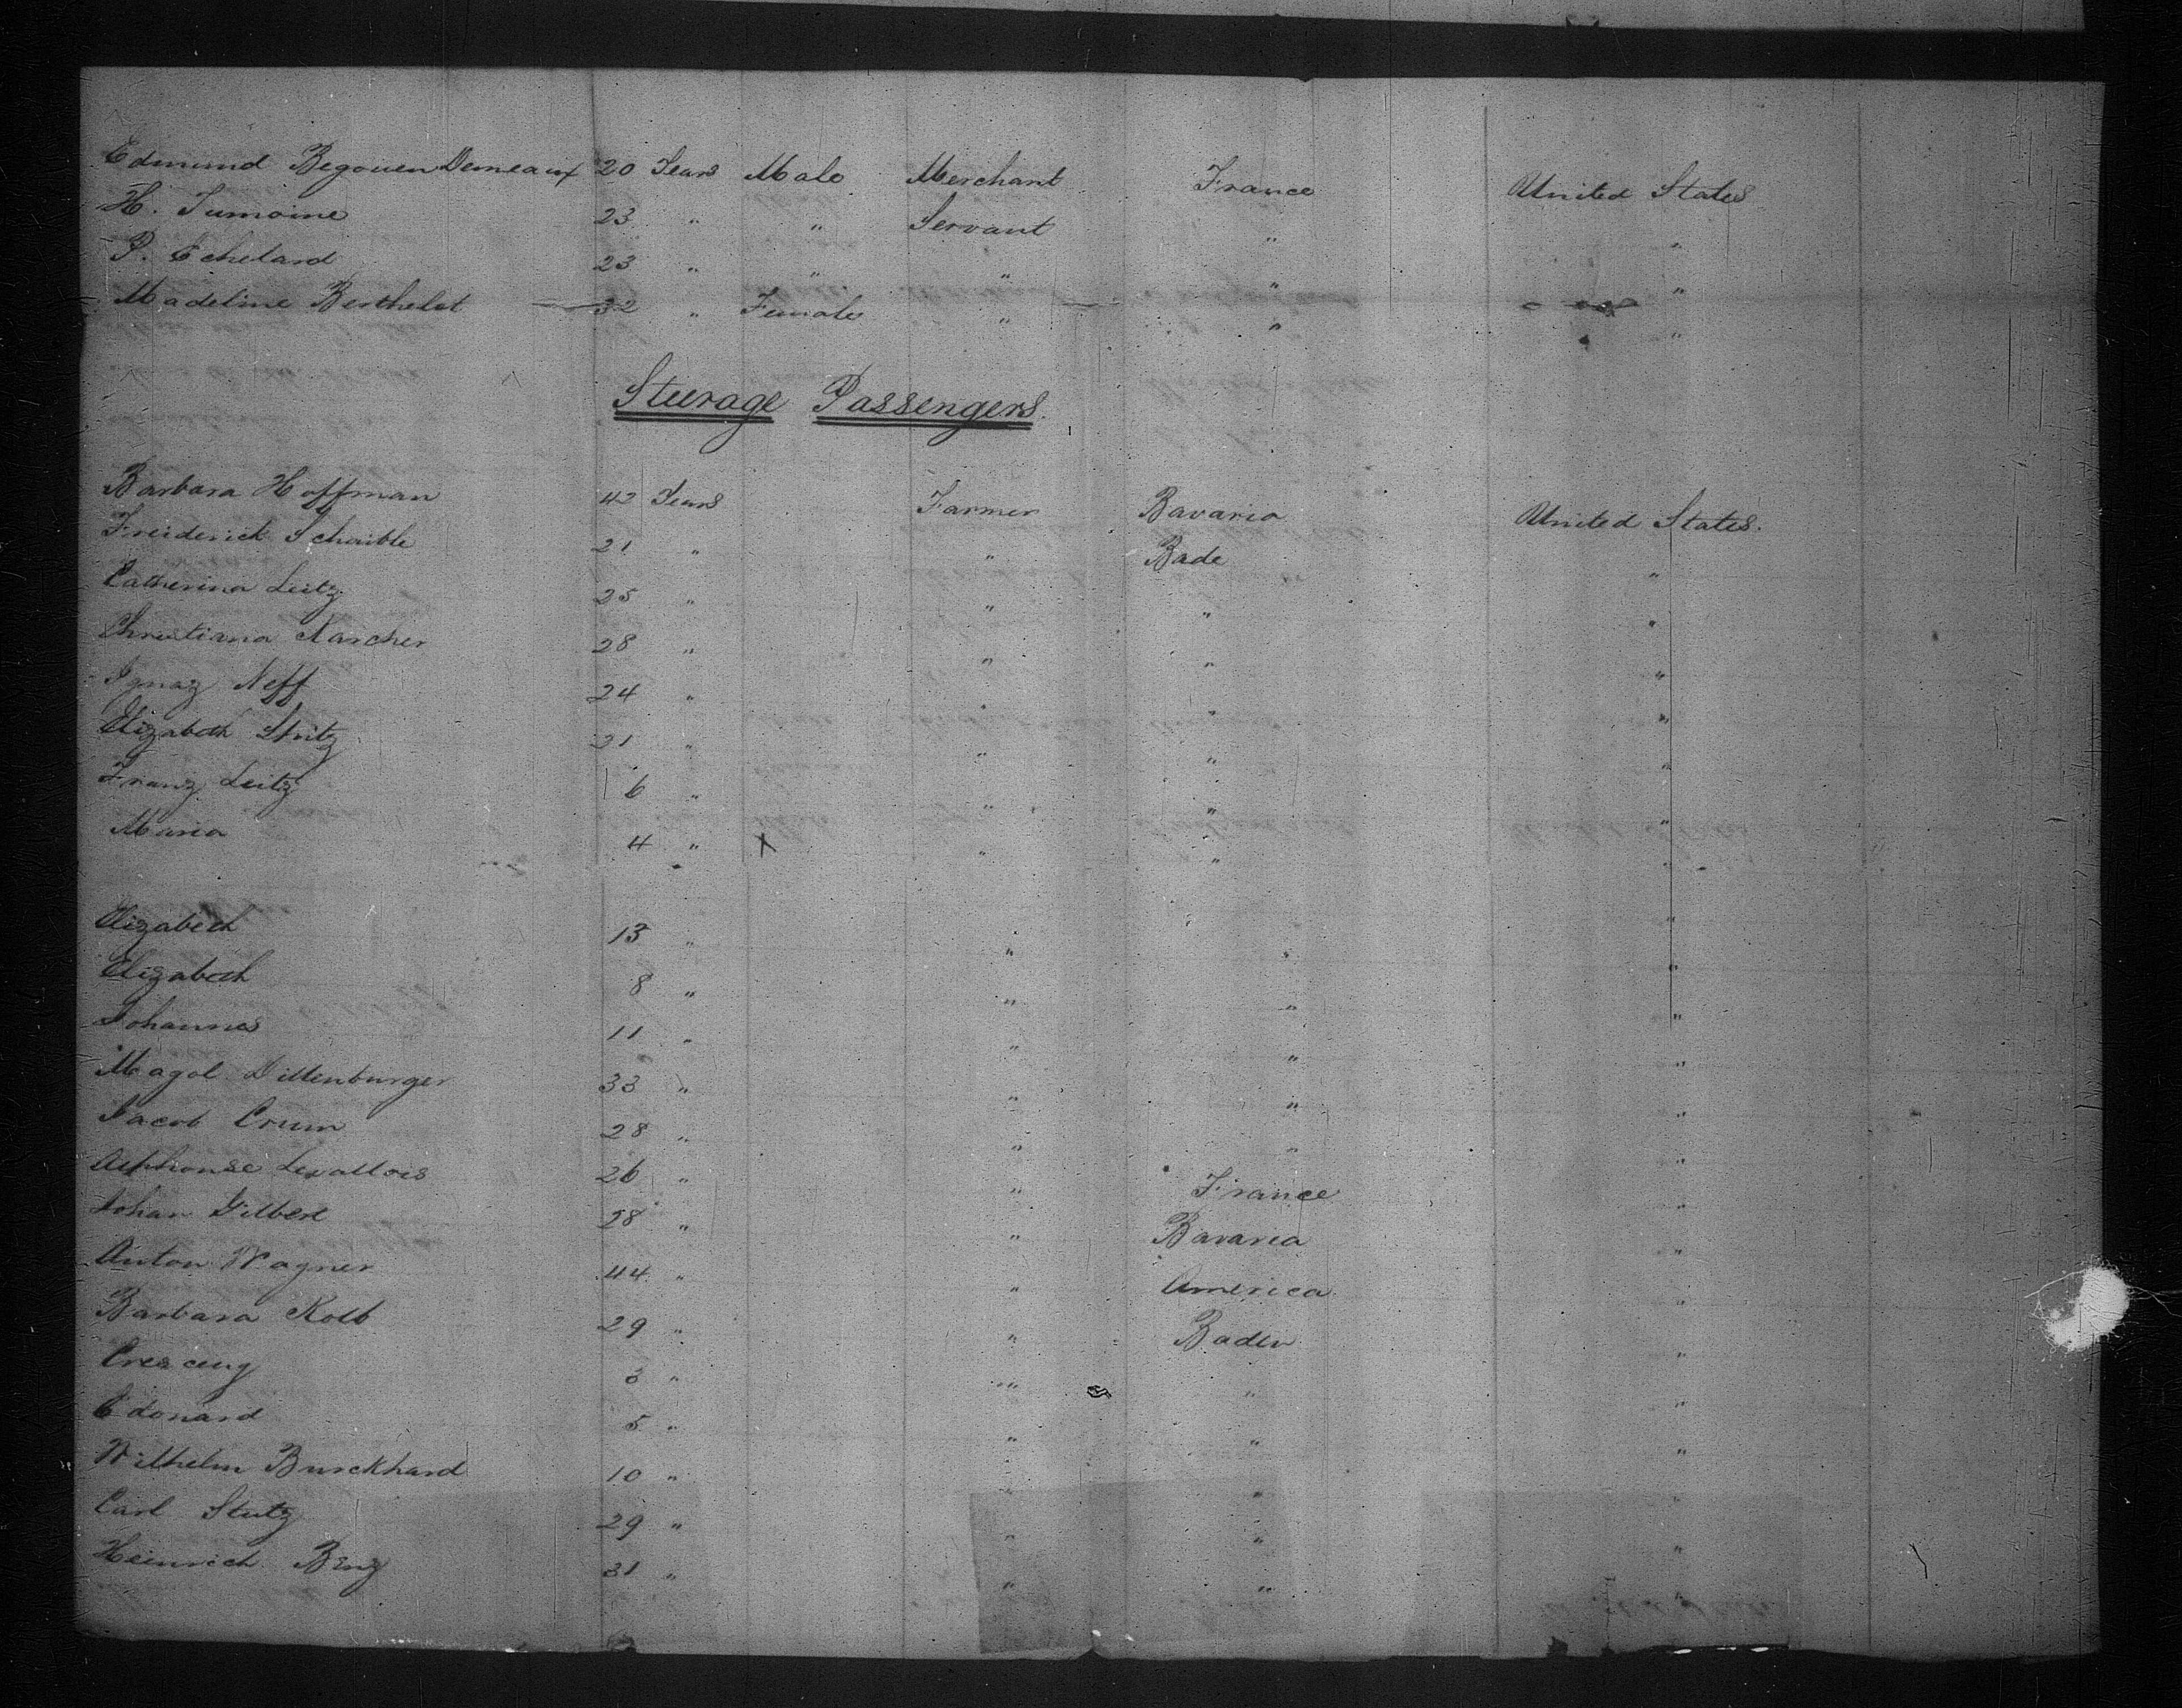 Edmund Begouen Demeaux 20 Years Male Merchant France United States
H. Jumoine 23 " " Servant " "
P. Echelard 23 " " " " "
Madeline Berthelot 32 " Female " " "
Steerage Passengers.
Barbara Hoffman 42 Years Farmer Bavaria United States.
Freiderick Schaible 21 " " Bade "
Catherina Leitz 25 " " " "
Christiana Karcher 28 " " " "
Ignaz Neff 24 " " " "
Elizabeth 21 " " " "
Franz Leitz 6 " " " "
Maria 4 " X " " "
Elizabeth 13 " " " "
Elizabeth 8 " " " "
Johannes 11 " " " "
Magol. Dillenburger 33 " " " "
Jacob Crum 28 " " " "
Alphonse Levallois 26 " " France "
Johan Gilbert 28 " " Bavaria "
Anton Wagner 44 " " America "
Barbara Kolb 29 " " Baden "
Crescenz 3 " " " "
Edouard 5 " " " "
Wilhelm Burckhard 10 " " " "
Carl Stutz 29 " " " "
Heinrich Binz 31 " " " "